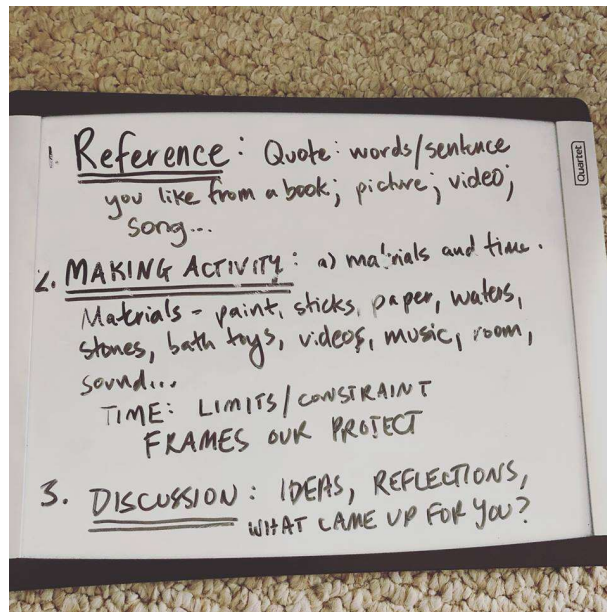 1. Reference: Quote: words/sentence
you like from a book; picture; video;
song...
2. MAKING ACTIVITY: a) materials and time.
Materials - paint, sticks, paper, waters,
stones, bath toys, videos, music, room,
sound...
TIME: LIMITS/CONSTRAINT
FRAMES OUR PROJECT
3. DISCUSSION: IDEAS, REFLECTIONS,
WHAT CAME UP FOR YOU?
Quartet